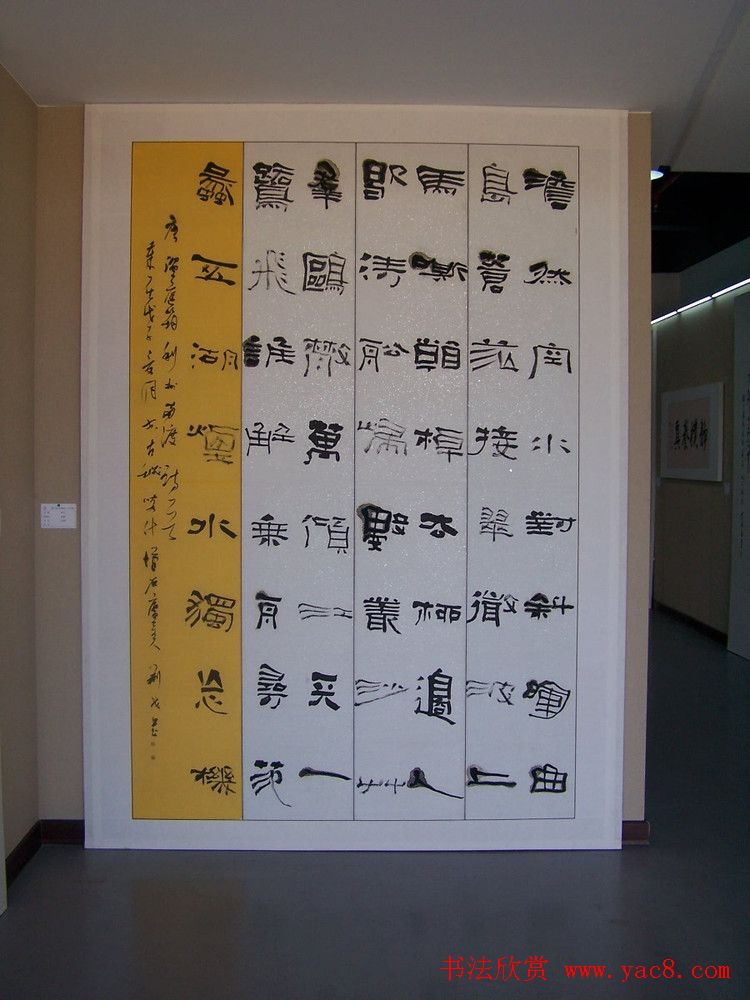 澹然空水對斜暉曲
島蒼茫接翠微波上
馬嘶看棹去柳邊人
歇待船歸數叢沙艸
羣鷗散萬頃江天一
鷺飛誰解乘舟尋范
蠡五湖煙水獨忘機
唐溫庭筠利州南渡詩一首
书法欣赏 www.yac8.com